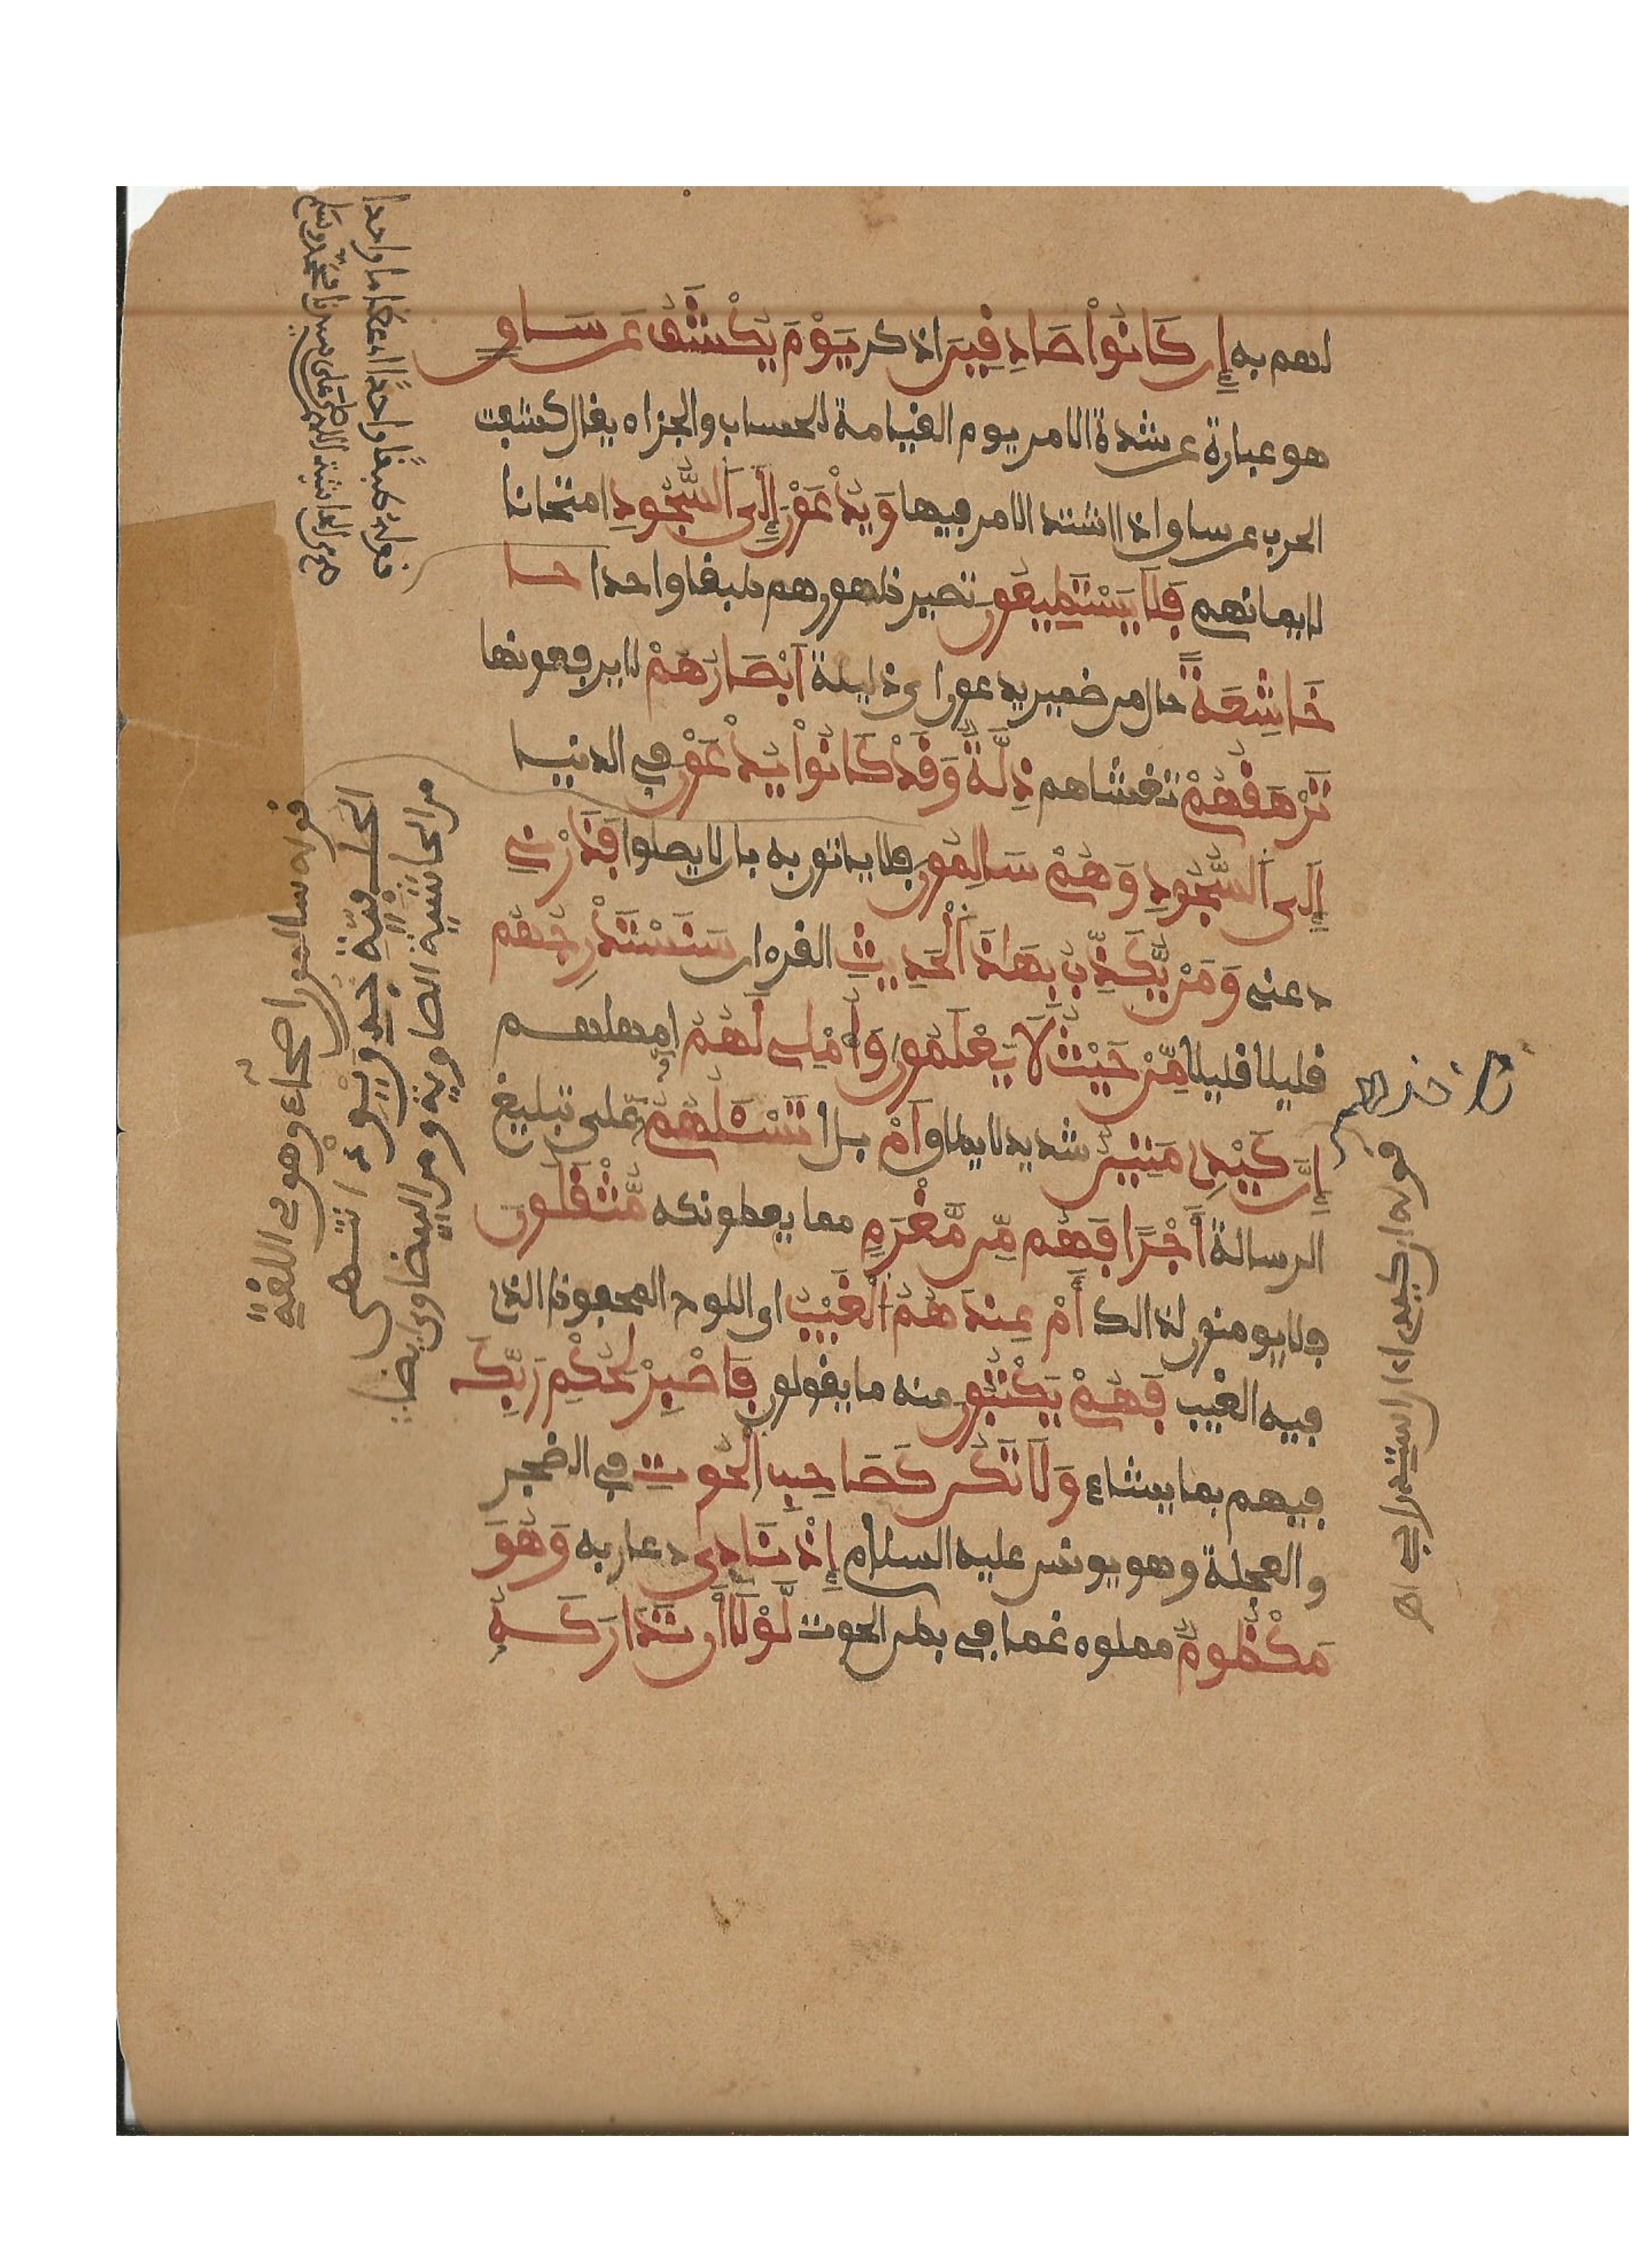 لهم به إِن كَانُواْ صَادِفِينَ اذكر يَوْمَ يُكْشَفُ عَن سَاقٍ
هو عبارة عن شدة الامر يوم القيامة للحساب والجزاء يقال كشفت
الحرب عن ساق اذا اشتد الامر فيها وَيُدْعَوْنَ إِلَى اَلسُّجُودِ امتحانا
لايمانهم فَلَا يَسْتَطِيعُونَ تصير ظهورهم طبقا واحدا
خَاشِعَةً حال من ضمير يدعون اى ذليلة اَبْصَارُهُمْ لا يرفعونها
تَرْهَقُهُمْ تغشاهم ذِلَّةٌ وَقَدْ كَانُواْ يُدْعَوْنَ في الدنيا
إِلَى اَلسُّجُودِ وَهُمْ سَالِمُونَ فلا ياتون به بان لا يصلوا فَذَرْنِي
دعنى وَمَنْ يُّكَذِّبُ بِهَاذَا اَلْحَدِيثِ القرءان سَنَسْتَدْرِجُهُم
قليلا قليلا مِّنْ حَيْثُ لَا يَعْلَمُونَ وَأُمْلِي لَهُمْ امهلهم
إِنَّ كَيْدِى مَتِينٌ شديد لا يطاق أَمْ بل ا تَسْـَٔلُهُمْ على تبليغ
الرسالة أَجْرًا فَهُم مِّن مَّغْرَمٍ مما يعطونكه مُّثْقَلُونَ
فلا يومنون لذالك أَمْ عِندَهُمُ اَلْغَيْبُ اى اللوح المحفوظ الذى
فيه الغيب فَهُمْ يَكْتُبُونَ منه ما يقولون فَاصْبِرْ لِحُكْمِ رَبِّكَ
فيهم بما يشاء وَلَا تَكُن كَصَاحِبِ اِلْحُوتِ في الضجر
والعجلة وهو يونس عليه السلام إِذْ نَادَى دعا ربه وَهُوَ
مَكْظُومٌ مملوء غما في بطن الحوت لَّوْلَا أَن تَدَارَكَهُ
قوله سالمون اصحاء وهو في اللغة
من الحاشية الصاوية ومن البيضاوى ايضا
قوله ان كيدى